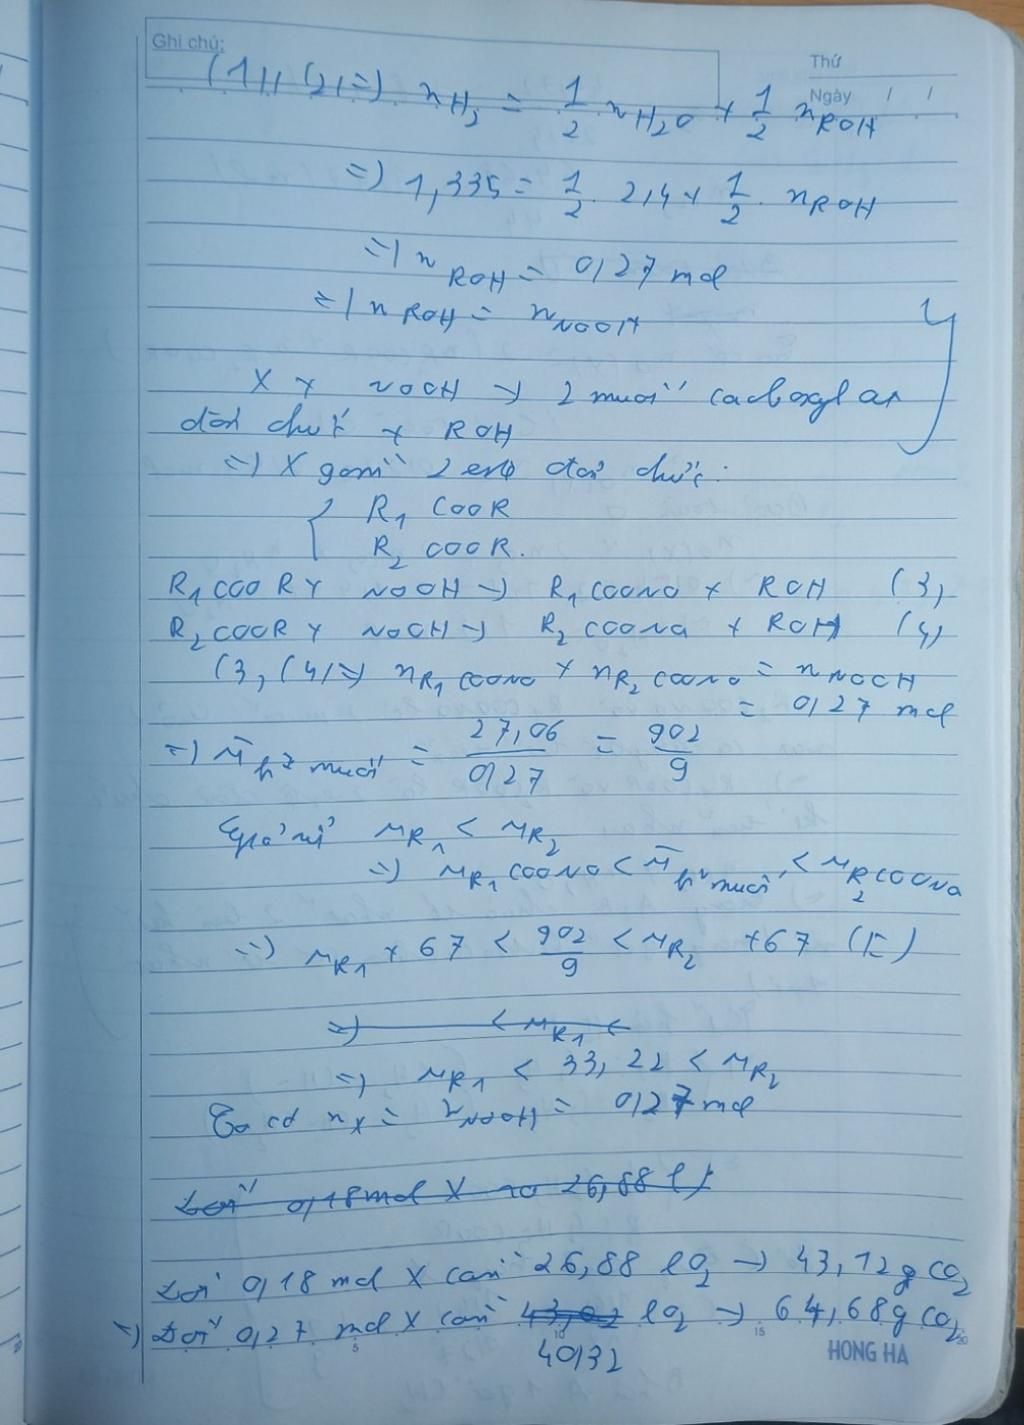 Ghi chú:
Thứ
Ngày / /
(1), (2) => nH2 = 1/2 nH2O + 1/2 nROH
=> 1,335 = 1/2 . 2,4 + 1/2 . nROH
=> nROH = 0,27 mol
=> nROH = nNaOH
X + NaOH -> 2 muối cacboxylat
đơn chức + ROH
=> X gồm 2 este đơn chức:
{ R1 COOR
R2 COOR.
R1COOR + NaOH -> R1COONa + ROH (3)
R2COOR + NaOH -> R2COONa + ROH (4)
(3), (4) => nR1COONa + nR2COONa = nNaOH
= 0,27 mol
=> M̄h² muối = 27,06/0,27 = 902/9
Giả sử MR1 < MR2
=> MR1COONa < M̄h² muối < MR2COONa
=> MR1 + 67 < 902/9 < MR2 + 67
=> < MR1 <
=> MR1 < 33,22 < MR2
Ta có nX = nNaOH = 0,27 mol
Đốt 0,18 mol X cần 26,88 l O2 -> 43,12g CO2
=> Đốt 0,27 mol X cần l O2 -> 64,68g CO2
40,32
5 10 15 20
HONG HA